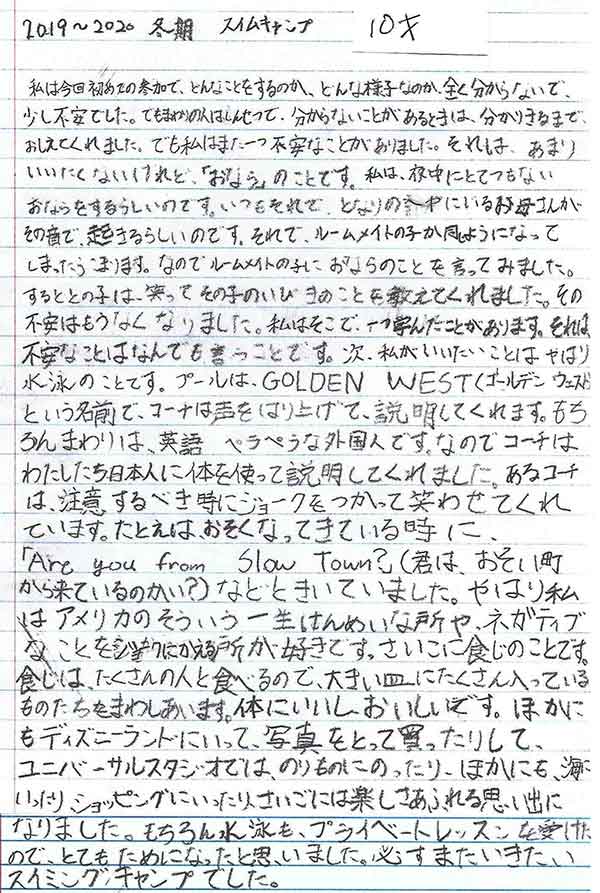 2019〜2020 冬期 スイムキャンプ 10才
私は今回初めての参加で、どんなことをするのか、どんな様子なのか、全く分からないで、
少し不安でした。でもまわりの人はしんせつで、分からないことがあるときは、分かりきるまで、
おしえてくれました。でも私はまた一つ不安なことがありました。それは、あまり
いいたくないけれど、「おなら」のことです。私は、夜中にとてつもない
おならをするらしいのです。いつもそれで、となりの中にいるお母さんが
その音で、起きるらしいのです。それで、ルームメイトの子が同じようになって
しまったらこまります。なのでルームメイトの子におならのことを言ってみました。
するとその子は、笑ってその子のいびきのことを教えてくれました。その
不安はもうなくなりました。私はそこで、一つ学んだことがあります。それは、
不安なことはなんでも言うことです。次、私がいいたいことはやはり
水泳のことです。プールは、GOLDEN WEST(ゴールデン ウエスト)
という名前で、コーチは声をはり上げて、説明してくれます。もち
ろんまわりは、英語 ペラペラな外国人です。なのでコーチは
わたしたち日本人に体を使って説明してくれました。あるコーチ
は、注意するべき時にジョークをつかって笑わせてくれ
ています。たとえば、おそくなってきている時に、
「Are you from Slow Town?」(君は、おそい町
から来ているのかい?)などときいていました。やはり私
はアメリカのそういう一生けんめいな所や、ネガティブ
なことをポジティブにかえる所が好きです。さいごに食じのことです。
食じは、たくさんの人と食べるので、大きい皿にたくさん入っている
ものたちをまわしあいます。体にいいし、おいしいです。ほかに
もディズニーランドにいって、写真をとって買ったりして、
ユニバーサルスタジオでは、のりものにのったり、ほかにも、海に
いったり、ショッピングにいったり、さいごには楽しさあふれる思い出に
なりました。もちろん水泳も、プライベートレッスンを受けた
ので、とてもためになったと思いました。必ずまたいきたい
スイミングキャンプでした。